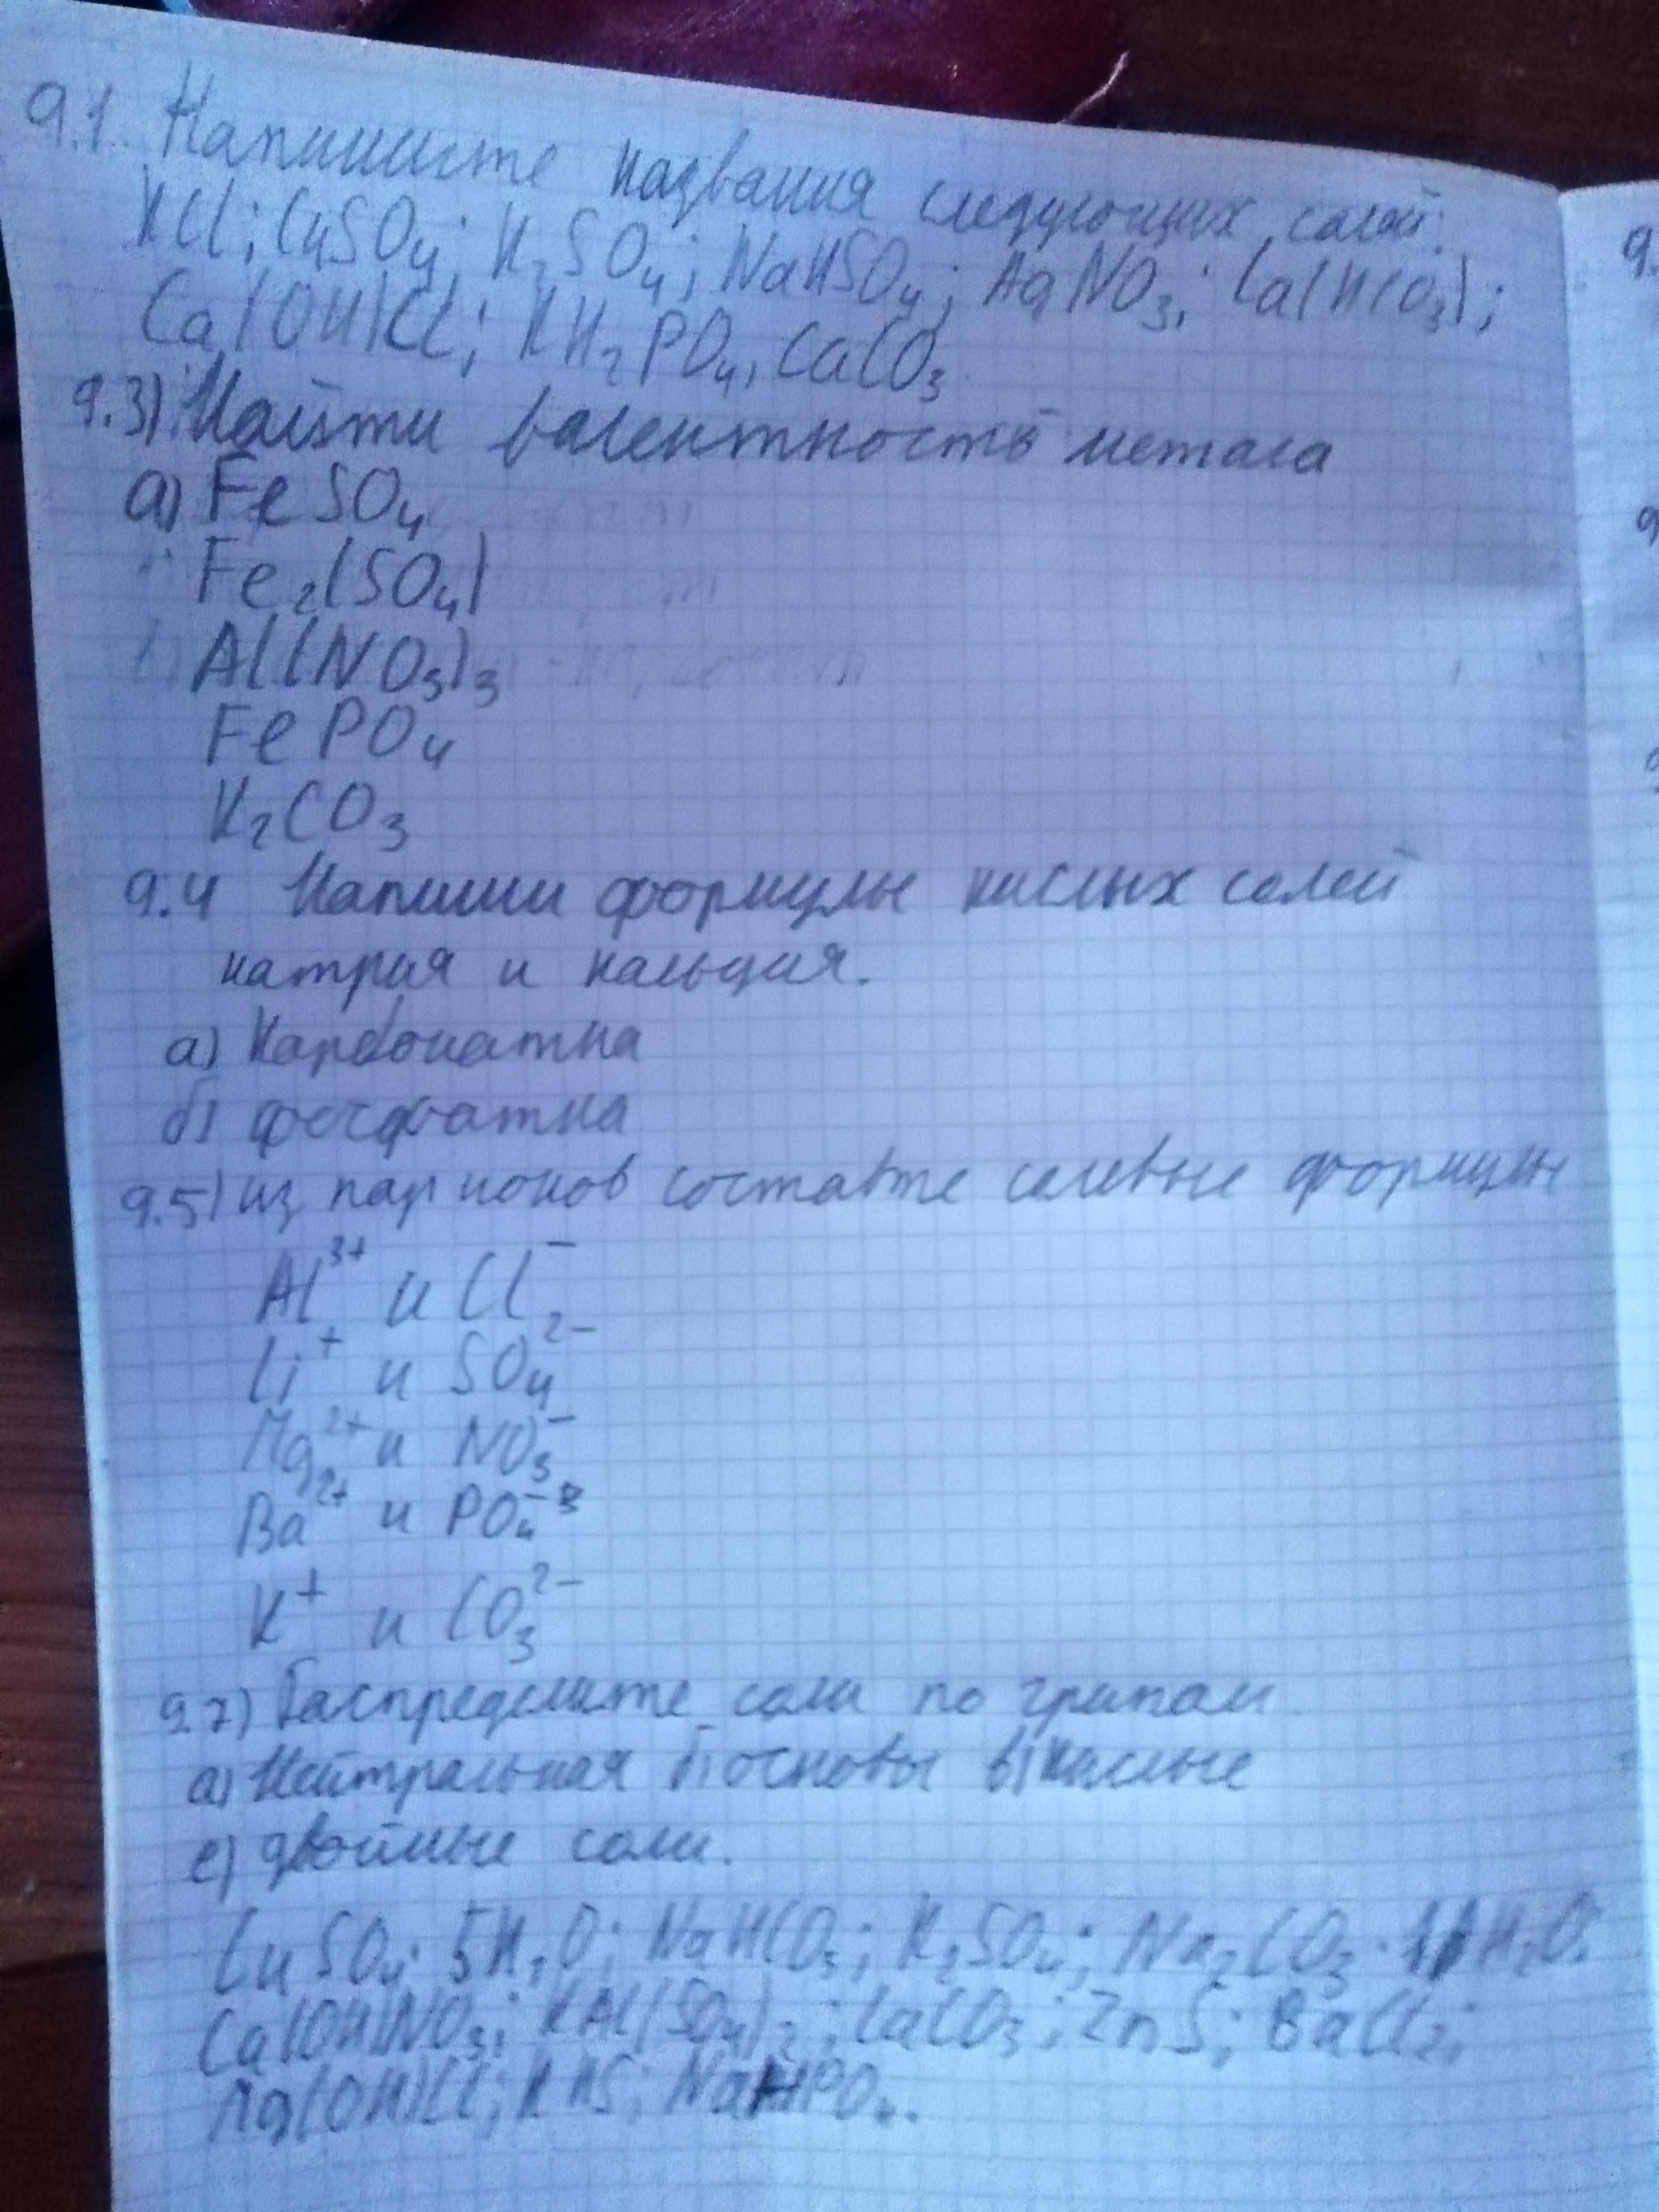 9.1. Напишите названия следующих солей:
KCl; CuSO₄; K₂SO₄; NaHSO₄; AgNO₃; Ca(HCO₃);
Ca(OH)Cl; KH₂PO₄, CaCO₃
9.3) Найти валентность метала
а) FeSO₄
Fe₂(SO₄)
Al(NO₃)₃
FePO₄
K₂CO₃
9.4 Напиши формулы кислых солей
натрия и кальция.
а) Карбонатна
б) фосфатна
9.5) из пар ионов составте солевые формулы
Al³⁺ и Cl⁻
Li⁺ и SO₄²⁻
Mg²⁺ и NO₃⁻
Ba²⁺ и PO₄⁻³
K⁺ и CO₃²⁻
9.7) Распределите соли по группам
а) Нейтральная б) основы в) кислые
е) двойные соли.
CuSO₄·5H₂O; NaHCO₃; K₂SO₄; Na₂CO₃·H₂O.
Ca(OH)NO₃; KAl(SO₄)₂; CaCO₃; ZnS; BaCl₂;
Mg(OH)Cl; KHS; NaHPO₄.
9.